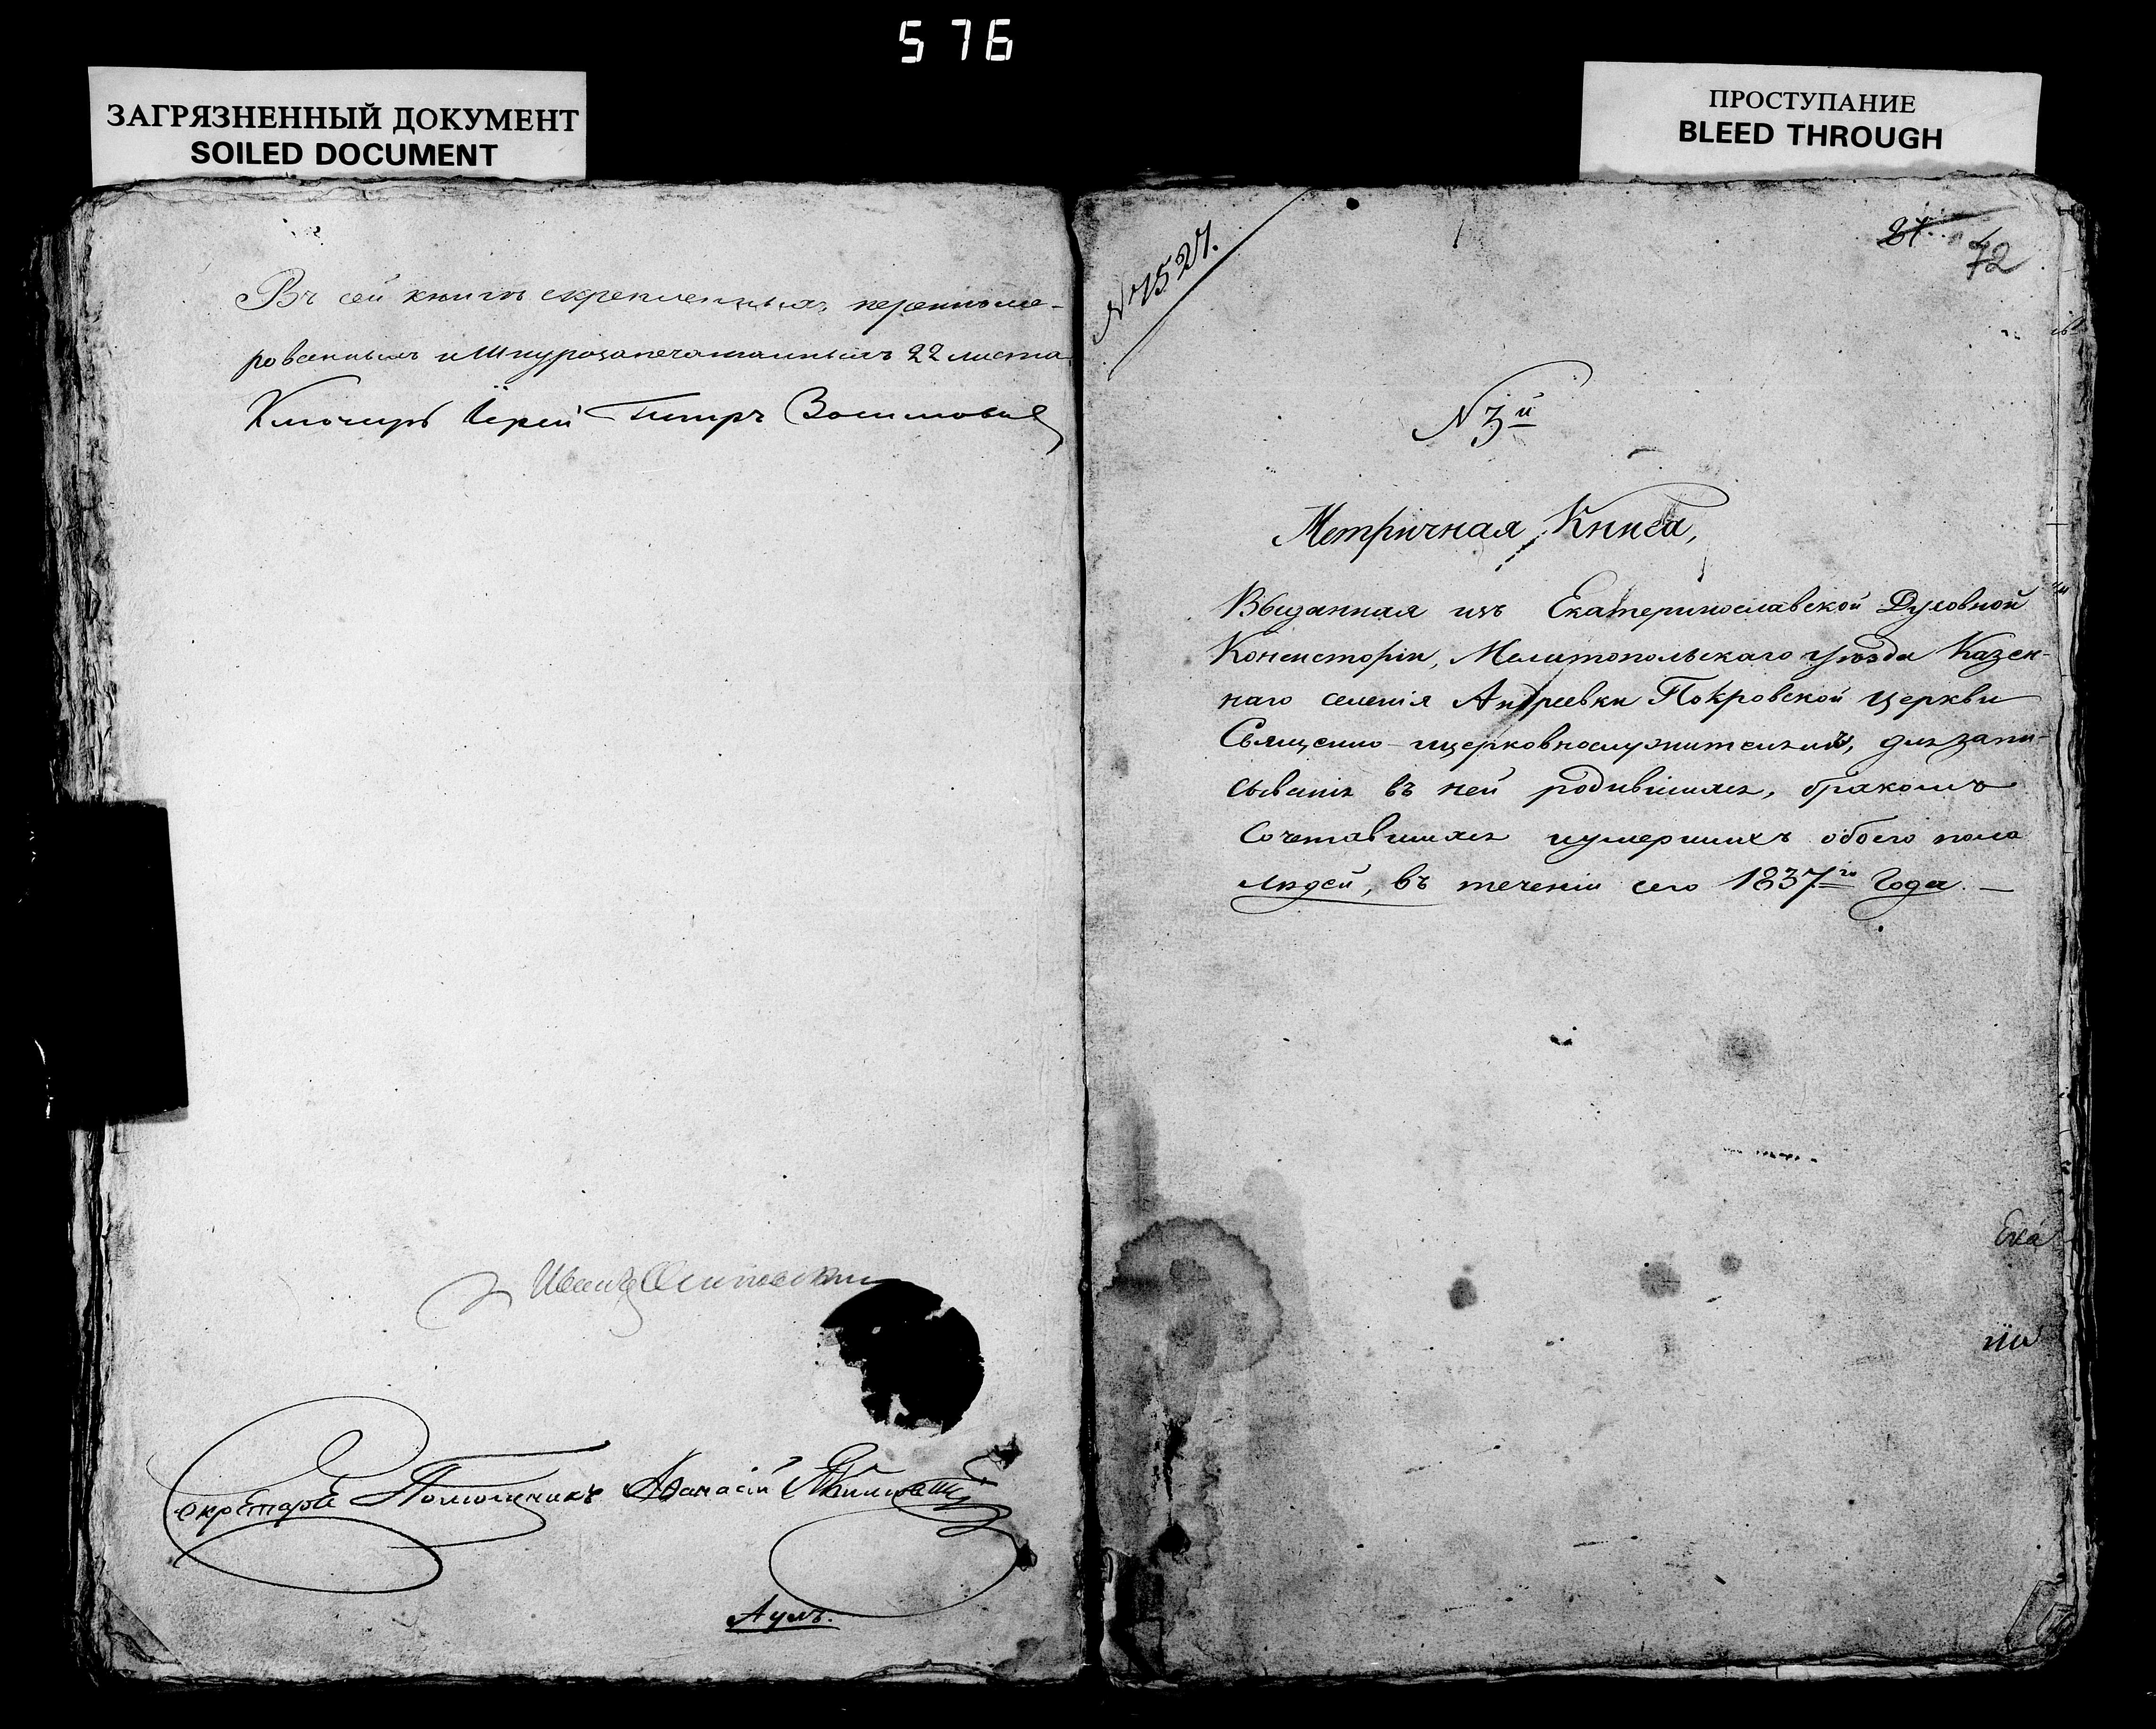 576
ЗАГРЯЗНЕННЫЙ ДОКУМЕНТ
SOILED DOCUMENT
ПРОСТУПАНИЕ
BLEED THROUGH
Въ сей книгѣ скрепленныхъ перенуме-
рованныхъ и Шнурозапечатанныхъ 22 листа
Ключарь Іерей Петръ
Иванъ
Секретаря Помощникъ Аѳанасій
N 1527.
72
N 3й
Метричная Книга,
Выданная изъ Екатеринославской Духовной
Консисторіи, Мелитопольскаго уѣзда Казен-
наго селенія Андреевки Покровской Церкви
Священно-церковнослужителямъ, для запи-
сыванія въ ней родившихся, бракомъ
Сочетавшихся и умершихъ обоего пола
людей, въ теченіи сего 1837го Года. —
Ека